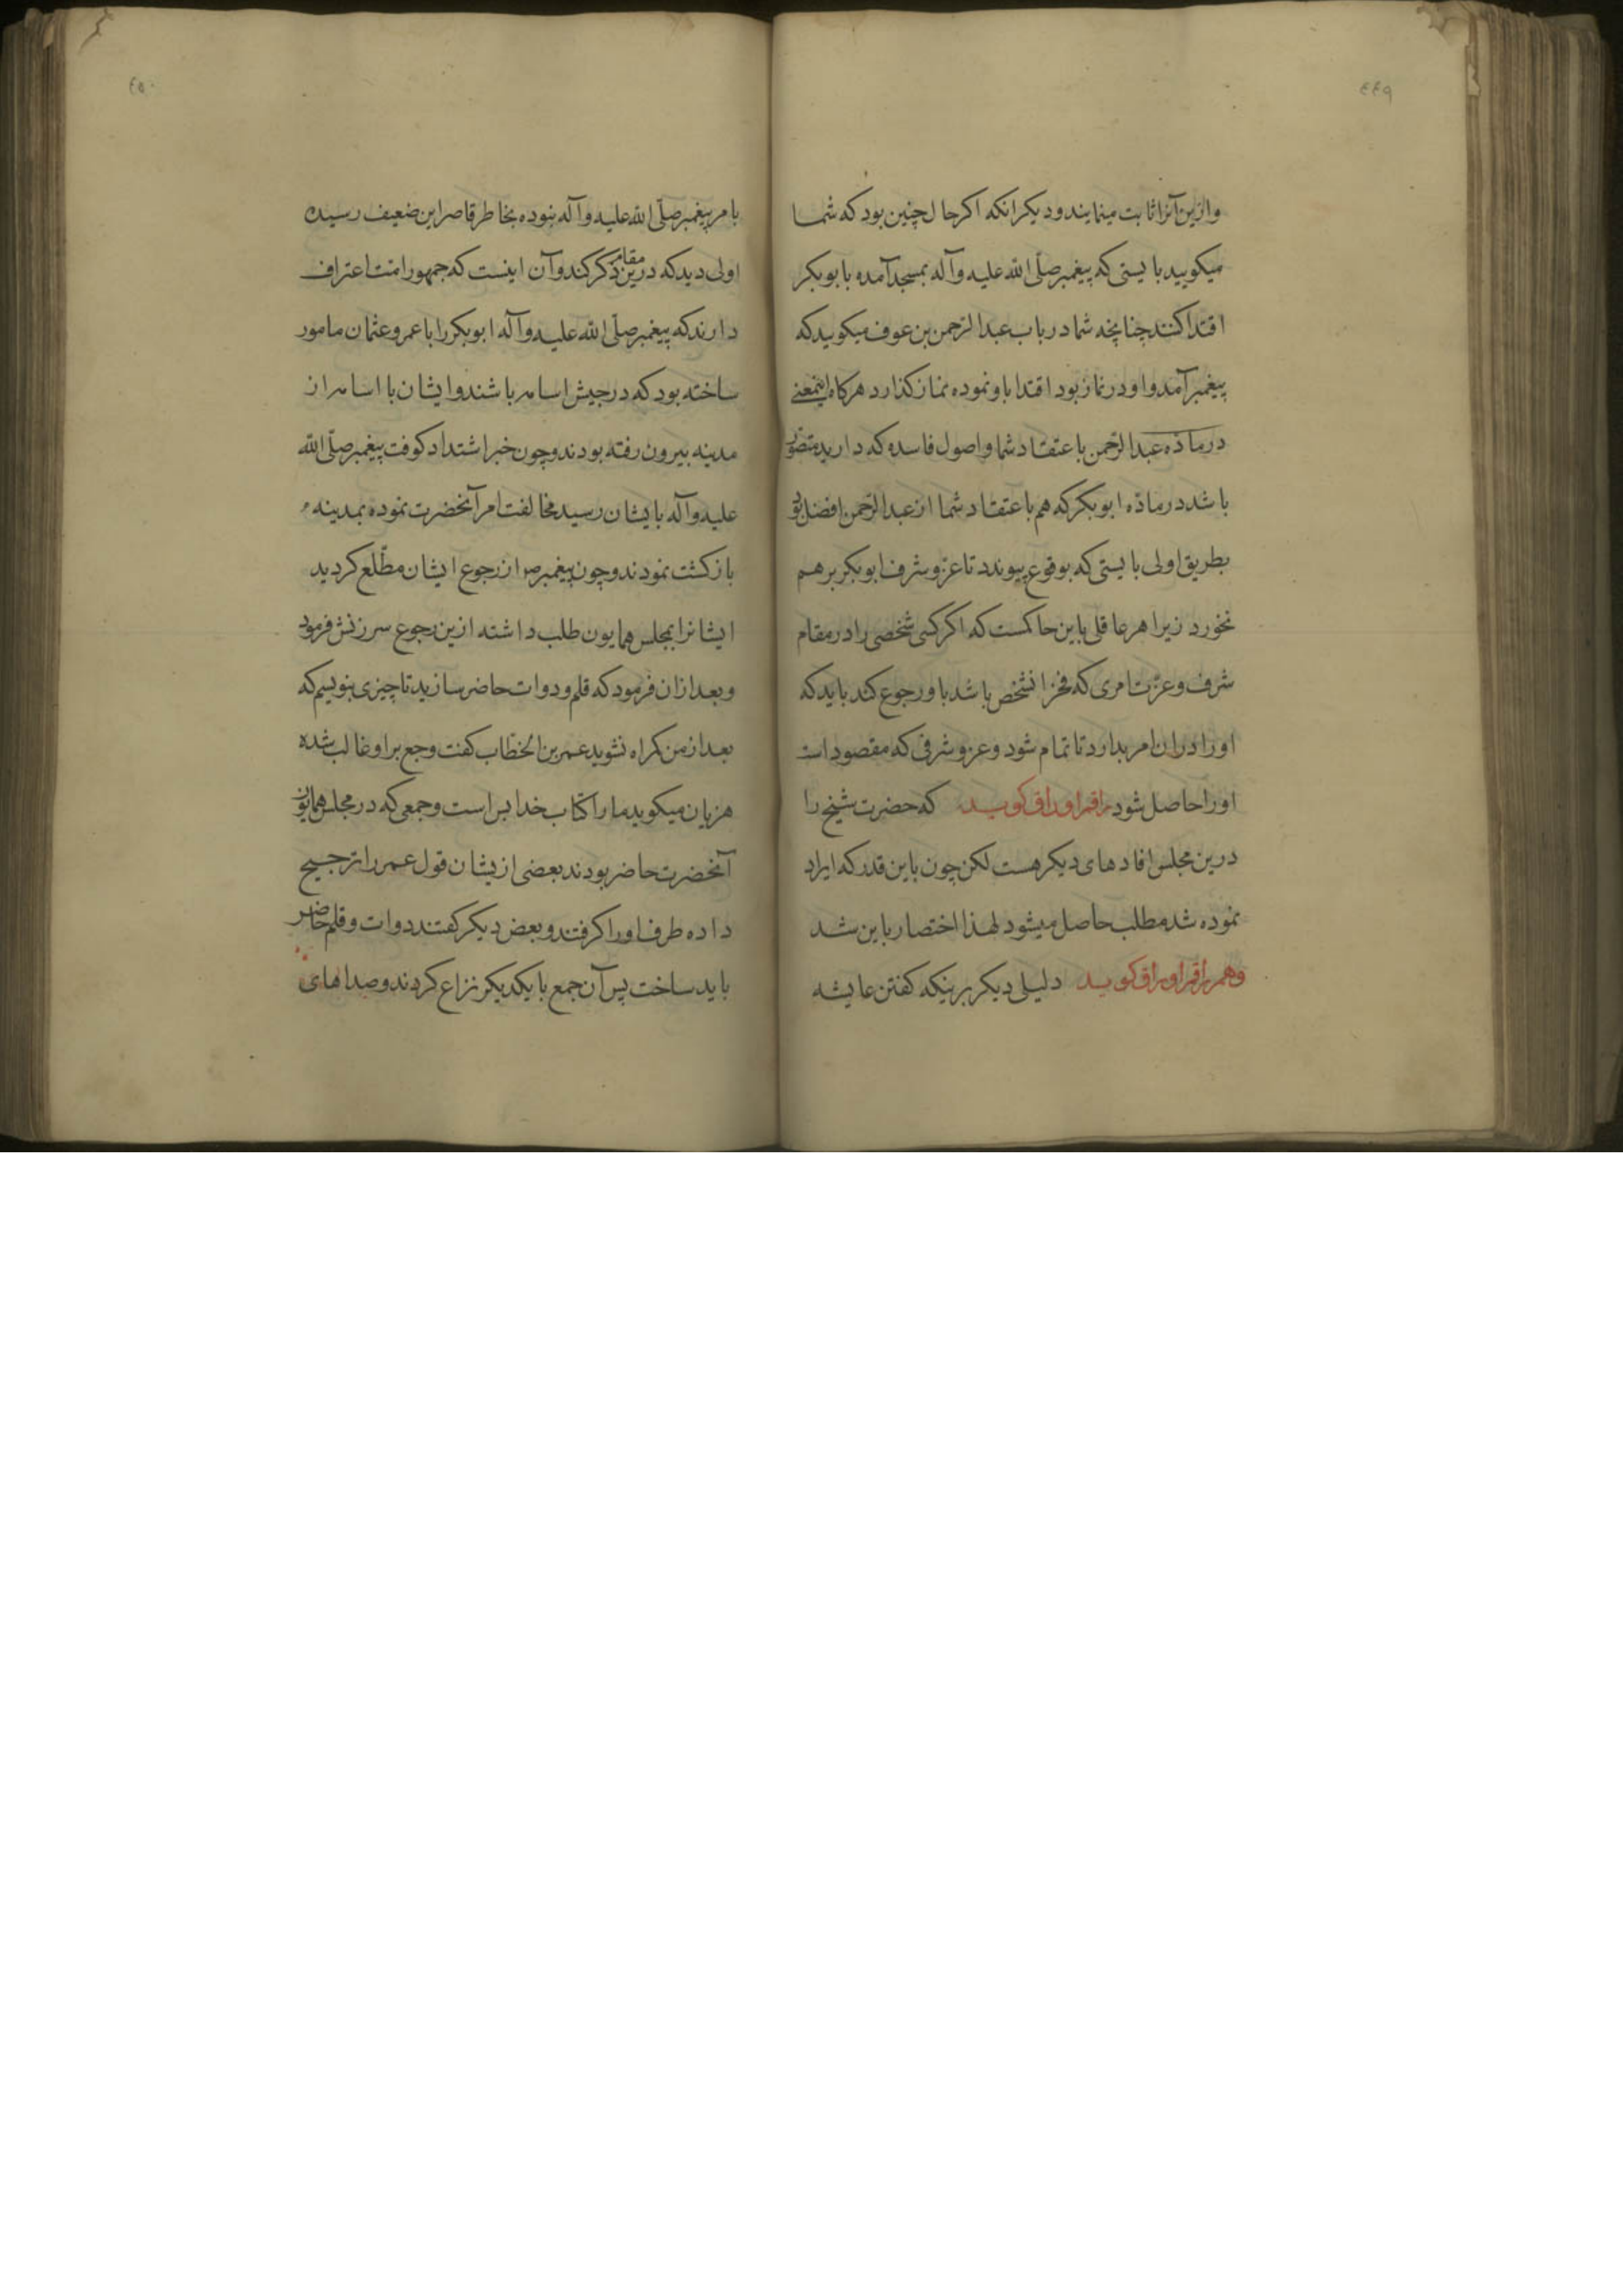 ٤٤٩
وازین آنرا ثابت مینمایند و دیکر انکه اکر حال چنین بود که شما
میکویید بایستی که پیغمبر صلّی الله علیه وآله بمسجد آمده بابوبکر
اقتدا کنند چنانچه شما در باب عبد الرّحمن بن عوف میکویید که
پیغمبر آمد و او در نماز بود اقتدا باو نموده نماز کذارد هرکاه اینمعنی
در مادّه عبد الرّحمن باعتقاد شما و اصول فاسده که دارید متصوّر
باشد در مادّه ابوبکر که هم باعتقاد شما از عبد الرّحمن افضل بود
بطریق اولی بایستی که بوقوع پیوندد تا عزّ و شرف ابوبکر برهم
نخورد زیرا هر عاقلی باین حاکمست که اکر کسی شخصی را در مقام
شرف و عزّت امری که فخر انشخص باشد باو رجوع کند باید که
اورا دران امر بدارد تا تمام شود و عز و شرفی که مقصود است
اورا حاصل شود راقم اوراق کوید که حضرت شیخ را
درین مجلس افادهای دیکر هست لکن چون باین قدر که ایراد
نموده شد مطلب حاصل میشود لهذا اختصار باین شد
وهم راقم اوراق کوید دلیلی دیکر برینکه کفتن عایشه
٤٥٠
بامر پیغمبر صلّی الله علیه وآله نبوده بخاطر قاصر این ضعیف رسیده
اولی دید که درین مقام ذکر کند و آن اینست که جمهور امت اعتراف
دارند که پیغمبر صلّی الله علیه وآله ابوبکر را با عمر و عثمان مامور
ساخته بود که در جیش اسامه باشند و ایشان با اسامه از
مدینه بیرون رفته بودند و چون خبر اشتداد کوفت پیغمبر صلّی الله
علیه وآله بایشان رسید مخالفت امر آنحضرت نموده بمدینه
بازکشت نمودند و چون پیغمبر ص از رجوع ایشان مطّلع کردید
ایشانرا بمجلس همایون طلب داشته ازین رجوع سرزنش فرمود
و بعد ازان فرمود که قلم و دوات حاضر سازید تا چیزی بنویسم که
بعد از من کمراه نشوید عمر بن الخطّاب کفت وجع بر او غالب شده
هزیان میکوید ما را کتاب خدا بس است و جمعی که در مجلس همایون
آنحضرت حاضر بودند بعضی ازیشان قول عمر را ترجیح
داده طرف اورا کرفتند و بعض دیکر کفتند دوات و قلم حاضر
باید ساخت پس آن جمع با یکدیکر نزاع کردند و صداهای